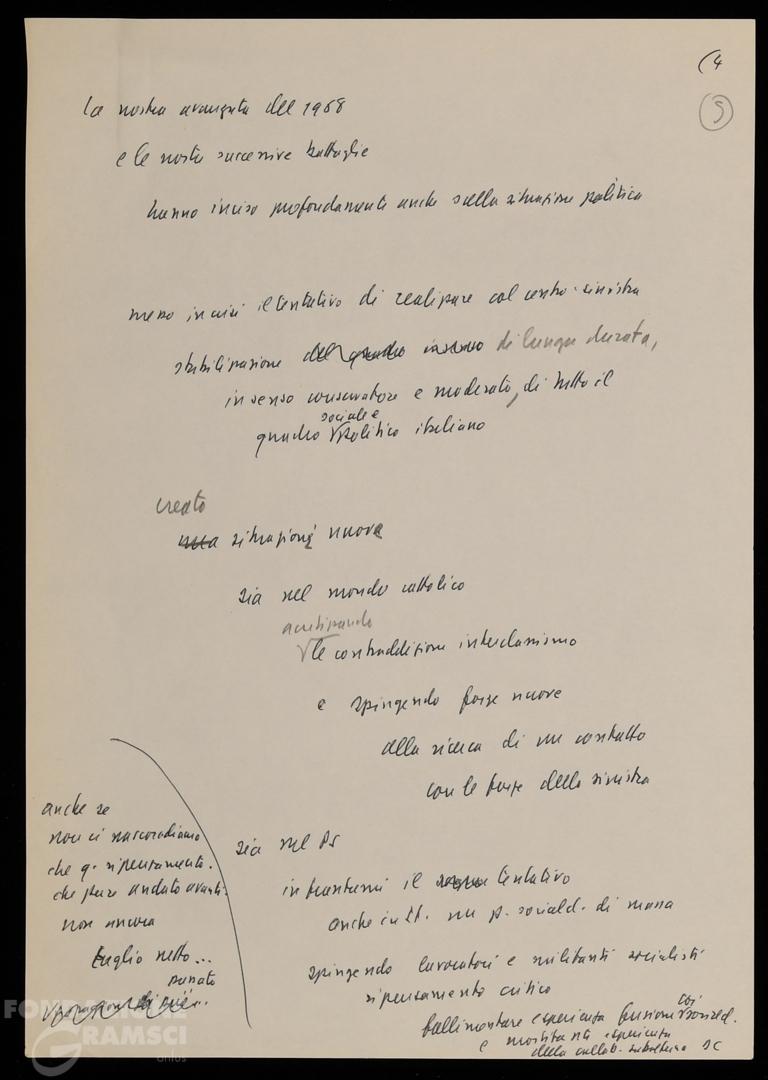 (4
9
La nostra avanzata del 1968
e le nostre successive battaglie
hanno inciso profondamente anche sulla situazione politica
messo in crisi il tentativo di realizzare col centro-sinistra
stabilizzazione del quadro di lunga durata,
in senso conservatore e moderato, di tutto il
sociale e
quadro politico italiano
creato
una situazioni nuove
sia nel mondo cattolico
acutizzando
le contraddizioni interclassismo
e spingendo forze nuove
alla ricerca di un contatto
con le forze della sinistra
anche se
non ci nascondiamo
che q. ripensamento.
che pure andato avanti.
non ancora
taglio netto...
sia nel PS
in frantumi il tentativo
anche in It. un p. sociald. di massa
spingendo lavoratori e militanti socialisti
ripensamento critico
fallimentare esperienza fusione coi sociald.
e esperienza
della collab. subalterna DC
FONDAZIONE
GRAMSCI
onlus